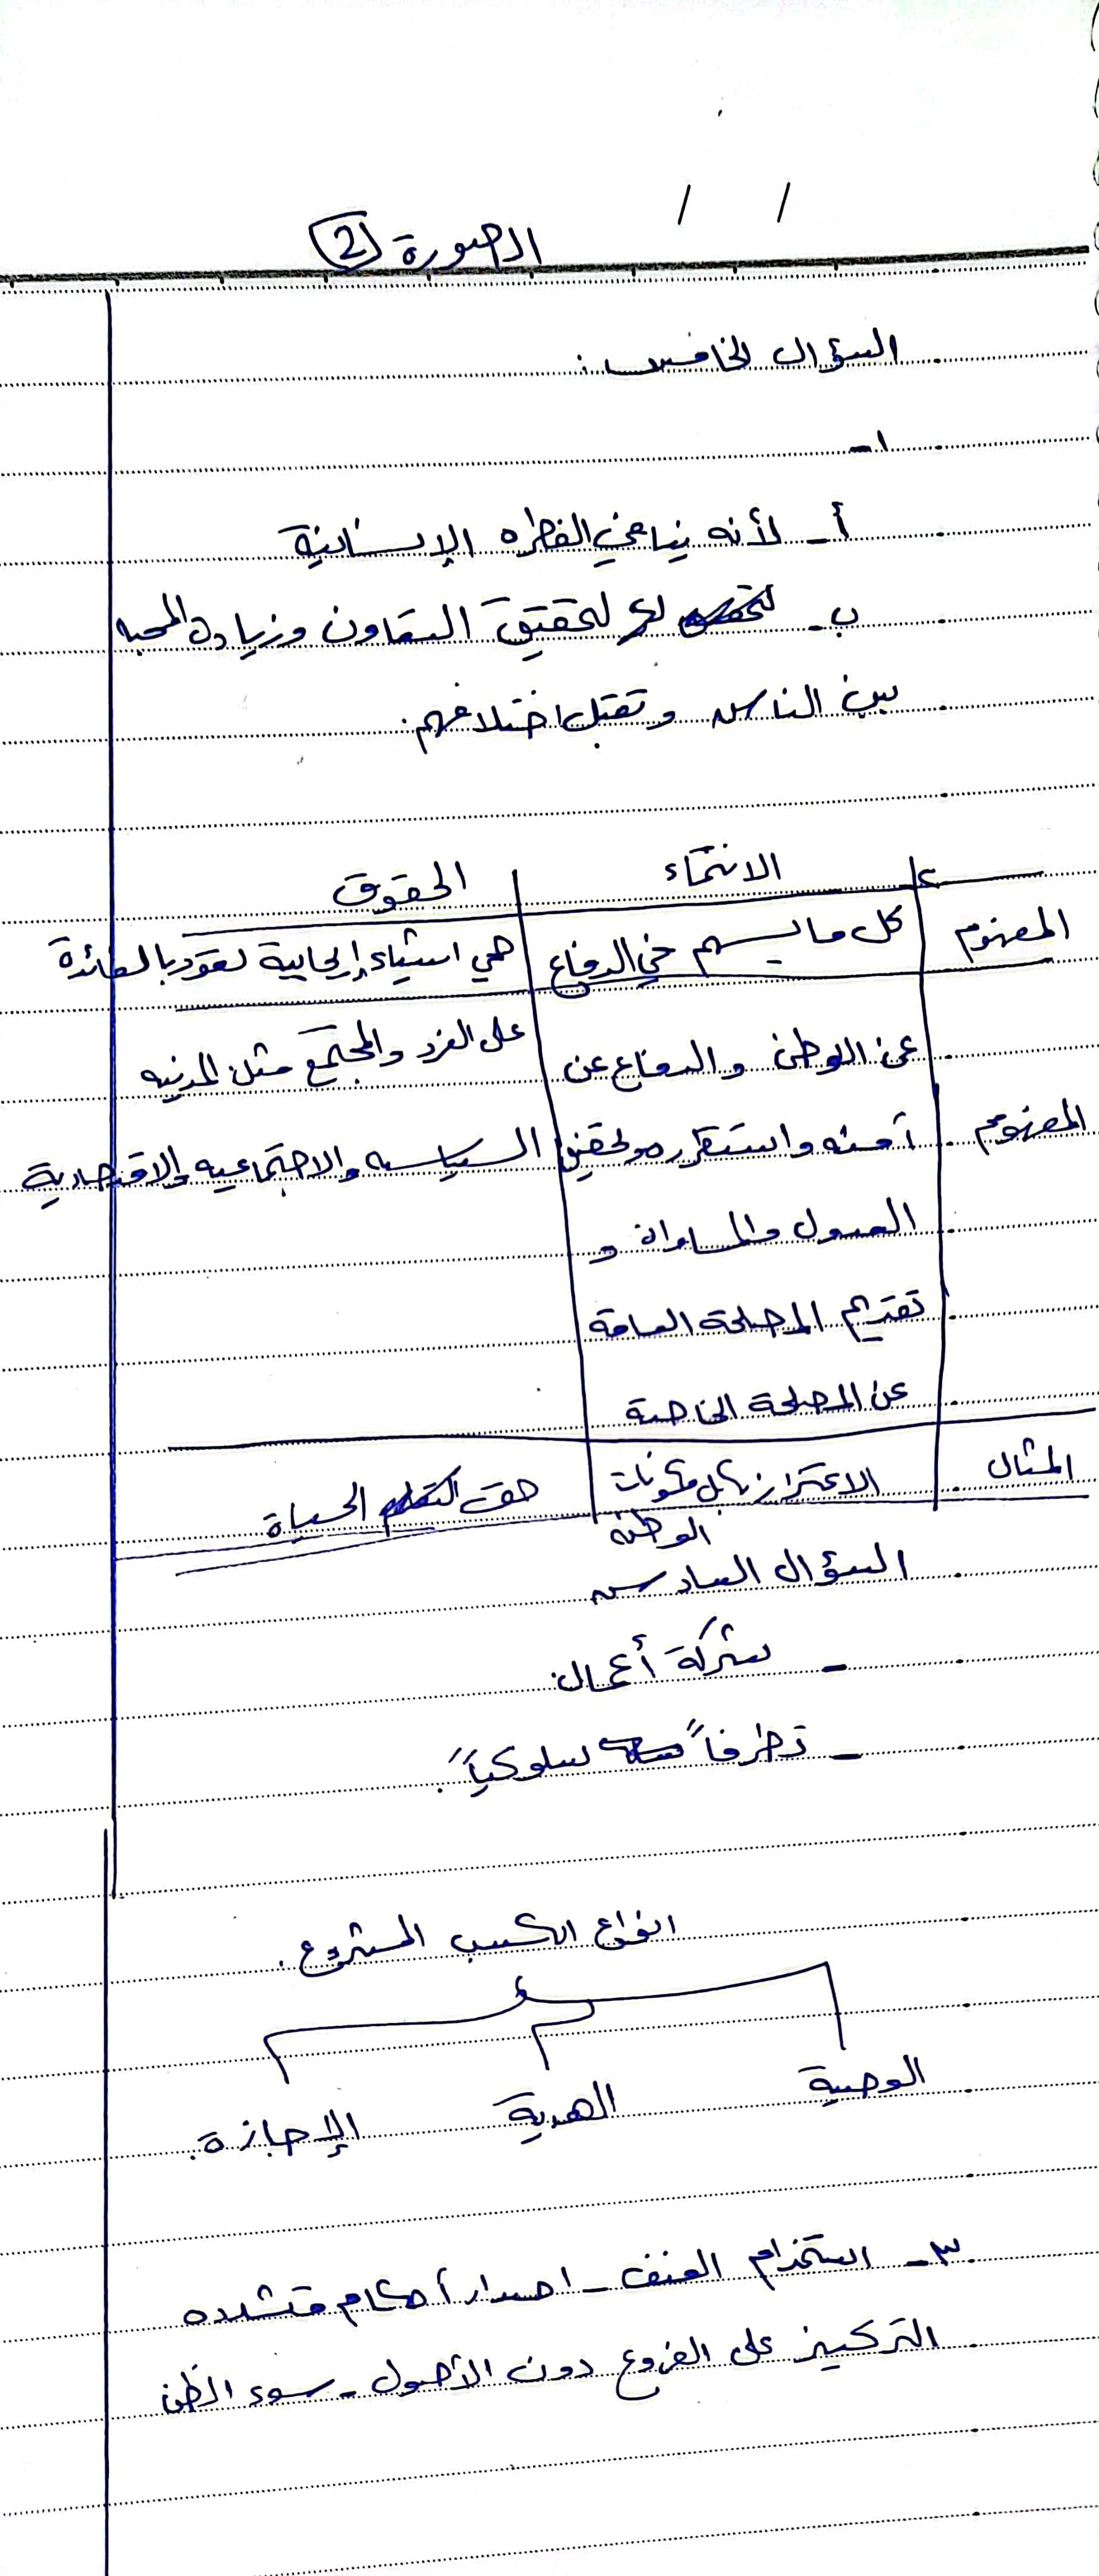 / /
الصورة (2)
السؤال الخامس :
١-
أ- لأنه ينافي الفطره الإنسانية
ب- لتحقيق التعاون وزيادة المحبه
بين الناس وتقبل اختلافهم.
٢- الانتماء الحقوق
المفهوم كل ما يسهم في الدفاع هي اشياء إيجابية تعود بالفائدة
عن الوطن والدفاع عن على الفرد والمجتمع مثل المدنيه
المفهوم أمنه واستقراره وتحقيق السياسيه والاجتماعيه والاقتصادية
العدل والمساواة و
تقديم المصلحة العامة
عن المصلحة الخاصة
المثال الاعتزاز بكل مكونات حق الحياة
الوطن
السؤال السادس
- شركة أعمال.
- تطرفاً سلوكياً.
انواع الكسب المشروع.
الوصية الهدية الإجازة.
٣- استخدام العنف - اصدار أحكام متشدده
التركيز على الفروع دون الأصول - سوء الظن